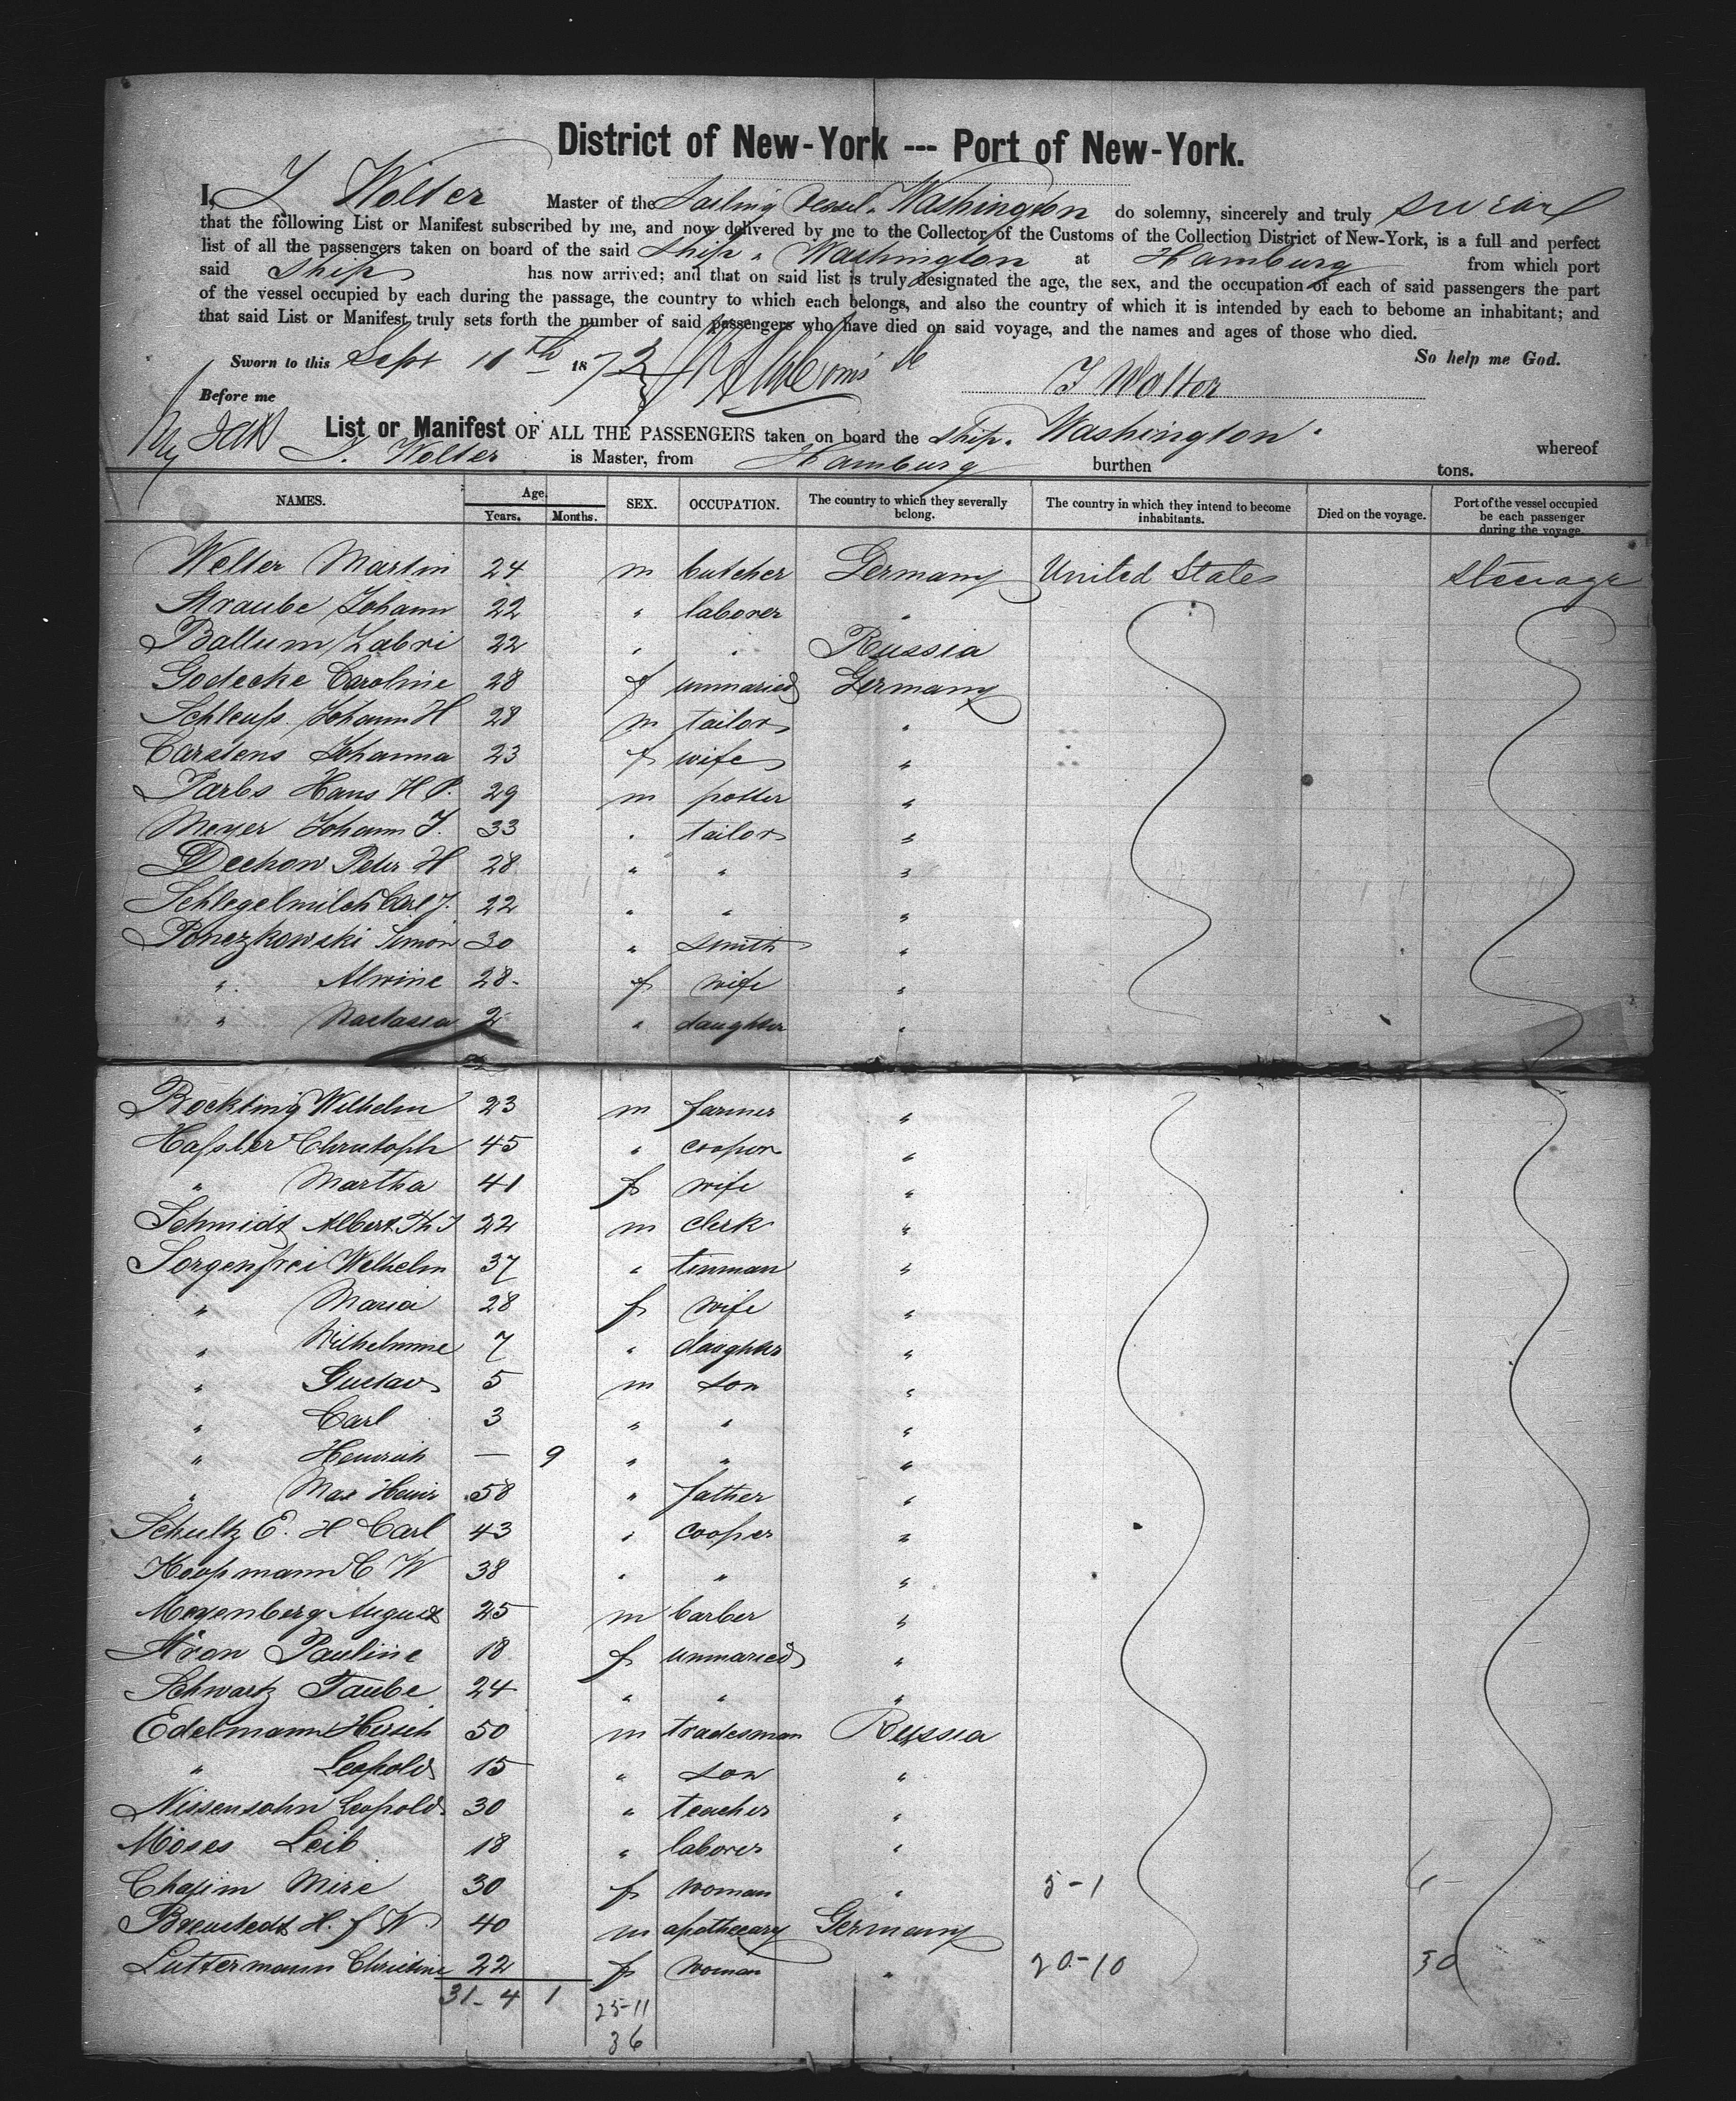 District of New-York --- Port of New-York.
I, J Wolter Master of the Sailing Vessel "Washington do solemny, sincerely and truly swear
that the following List or Manifest subscribed by me, and now delivered by me to the Collector of the Customs of the Collection District of New-York, is a full and perfect
list of all the passengers taken on board of the said Ship " Washington at Hamburg from which port
said Ship has now arrived; and that on said list is truly designated the age, the sex, and the occupation of each of said passengers the part
of the vessel occupied by each during the passage, the country to which each belongs, and also the country of which it is intended by each to bebome an inhabitant; and
that said List or Manifest truly sets forth the number of said passengers who have died on said voyage, and the names and ages of those who died.
Sworn to this Sept 11th 1872 So help me God.
Before me J Wolter
List or Manifest OF ALL THE PASSENGERS taken on board the ship " Washington " whereof
J. Wolter is Master, from Hamburg burthen tons.
NAMES. Age. Years. Months. SEX. OCCUPATION. The country to which they severally belong. The country in which they intend to become inhabitants. Died on the voyage. Port of the vessel occupied be each passenger during the voyage.
Welter Martin 24 m butcher Germany United States steerage
Straube Johann 22 " laborer "
Ballum Zabri 22 " " Russia
Godecke Caroline 28 f unmaried Germany
Schleuss Johann H 28 m tailor "
Carstens Johanna 23 f wife "
Parbs Hans H P. 29 m potter "
Meyer Johann J. 33 " tailor "
Dechow Peter H 28 " " "
Schlegelmilch Carl J. 22 " " "
Ponezkowski Simon 30 " smith "
" Alwine 28 f wife "
" Nastasia 2 " daughter "
Bockting Wilhelm 23 m farmer "
Hassler Christoph 45 " cooper "
" Martha 41 f wife "
Schmidt Albert Th J 22 m clerk "
Sorgenfrei Welhelm 37 " tinman "
" Maria 28 f wife "
" Wilhelmine 7 " daughter "
" Gustav 5 m son "
" Carl 3 " " "
" Heinrich — 9 " " "
" Max Heinr 58 " father "
Schultz E. H Carl 43 " cooper "
Koopmann C W 38 " " "
Meyenberg August 25 m barber "
Aron Pauline 18 f unmaried "
Schwartz Taube 24 " " "
Edelmann Hirsch 50 m tradesman Russia
" Leopold 15 " son "
Nissensohn Leopold 30 " teacher "
Moses Leib 18 " laborer "
Chajim Mire 30 f woman " 5-1 6
Breustedt H. f W. 40 m apothecary Germany
Luttermann Christine 22 f woman " 20-10 30
31-4 1 25-11
36